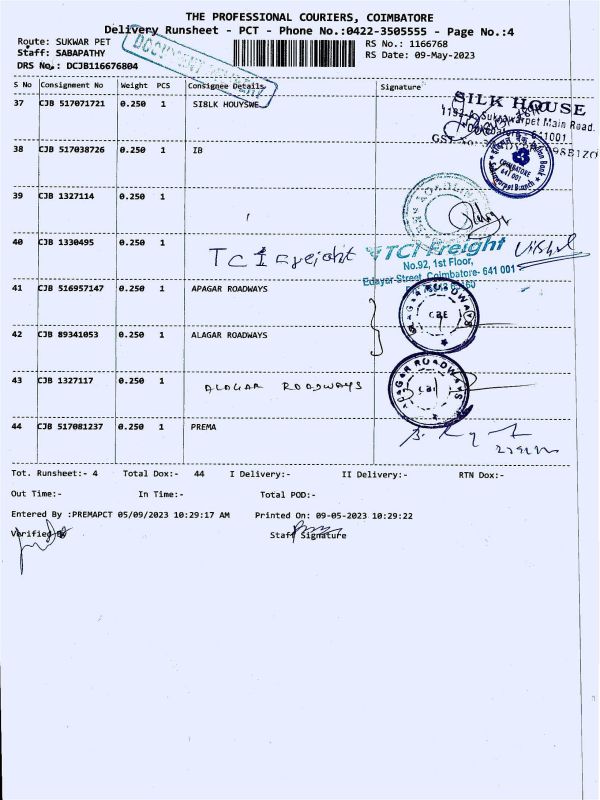 THE PROFESSIONAL COURIERS, COIMBATORE
Delivery Runsheet - PCT - Phone No.:0422-3505555 - Page No.:4
Route: SUKWAR PET
RS No.: 1166768
Staff: SABAPATHY
RS Date: 09-May-2023
DRS No.: DCJB116676804
DOCUMENT
S No Consignment No Weight PCS Consignee Details Signature
37 CJB 517071721 0.250 1 SIBLK HOUYSWE
SILK HOUSE
Sukrawarpet Main Road.
Coimbatore - 641001
38 CJB 517038726 0.250 1 IB
COIMBATORE
641 001
Sukrawarpet Branch
39 CJB 1327114 0.250 1
ROADLINES
40 CJB 1330495 0.250 1 TCI Freight
TCI Freight
No.92, 1st Floor,
Edayar Street, Coimbatore- 641 001
41 CJB 516957147 0.250 1 APAGAR ROADWAYS
ALAGAR ROADWAYS
CBE
42 CJB 89341053 0.250 1 ALAGAR ROADWAYS
43 CJB 1327117 0.250 1 ALAGAR ROADWAYS
ALAGAR ROADWAYS
CBE
44 CJB 517081237 0.250 1 PREMA
Tot. Runsheet:- 4 Total Dox:- 44 I Delivery:- II Delivery:- RTN Dox:-
Out Time:- In Time:- Total POD:-
Entered By :PREMAPCT 05/09/2023 10:29:17 AM Printed On: 09-05-2023 10:29:22
Verified By
Staff Signature